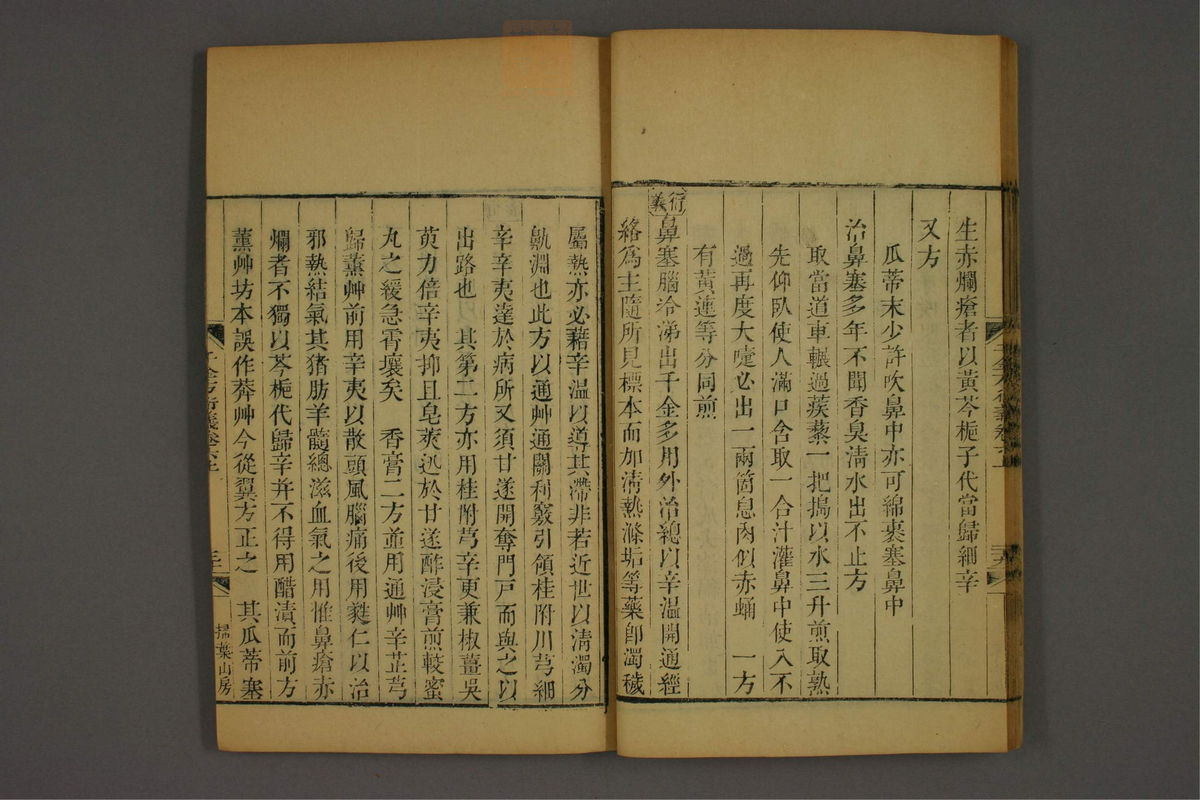 生赤爛瘡者以黃芩梔子代當歸細辛
又方
瓜蒂末少許吹鼻中亦可綿裹塞鼻中
治鼻塞多年不聞香臭淸水出不止方
取當道車輾過蒺藜一把搗以水三升煎取熟
先仰臥使人滿口含取一合汁灌鼻中使入不
過再度大嚏必出一兩箇息肉似赤蛹　一方
有黃連等分同煎
衍義
鼻塞腦冷涕出千金多用外治總以辛溫開通經
絡爲主隨所見標本而加淸熱滌垢等藥卽濁穢
屬熱亦必藉辛溫以導其滯非若近世以淸濁分
鼽淵也此方以通艸通關利竅引領桂附川芎細
辛辛夷達於病所又須甘遂開奪門戸而與之以
出路也　其第二方亦用桂附芎辛更兼椒薑吳
萸力倍辛夷抑且皂莢迅於甘遂酢浸膏煎較蜜
丸之緩急霄壤矣　香膏二方並用通艸辛芷芎
歸薰艸前用辛夷以散頭風腦痛後用蕤仁以治
邪熱結氣其猪肪羊髓總滋血氣之用惟鼻瘡赤
爛者不獨以芩梔代歸辛并不得用醋漬而前方
薰艸坊本誤作莽艸今從翼方正之　其瓜蒂塞
千金方衍義卷六上
掃葉山房